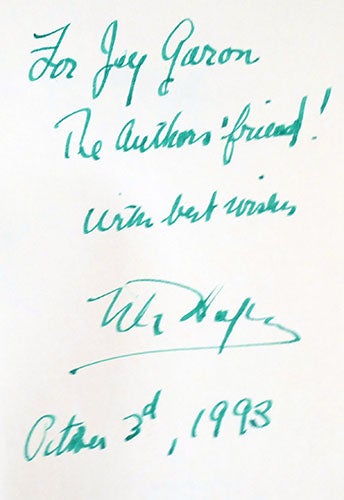 For Jay Garon
The Authors' friend!
With best wishes
October 3rd, 1993